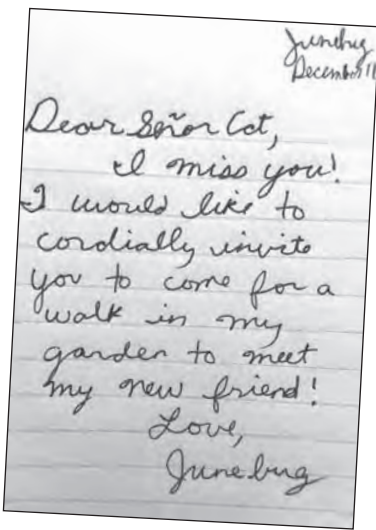 Junebug
December 11
Dear Señor Cat,
I miss you!
I would like to
cordially invite
you to come for a
walk in my
garden to meet
my new friend!
Love,
Junebug